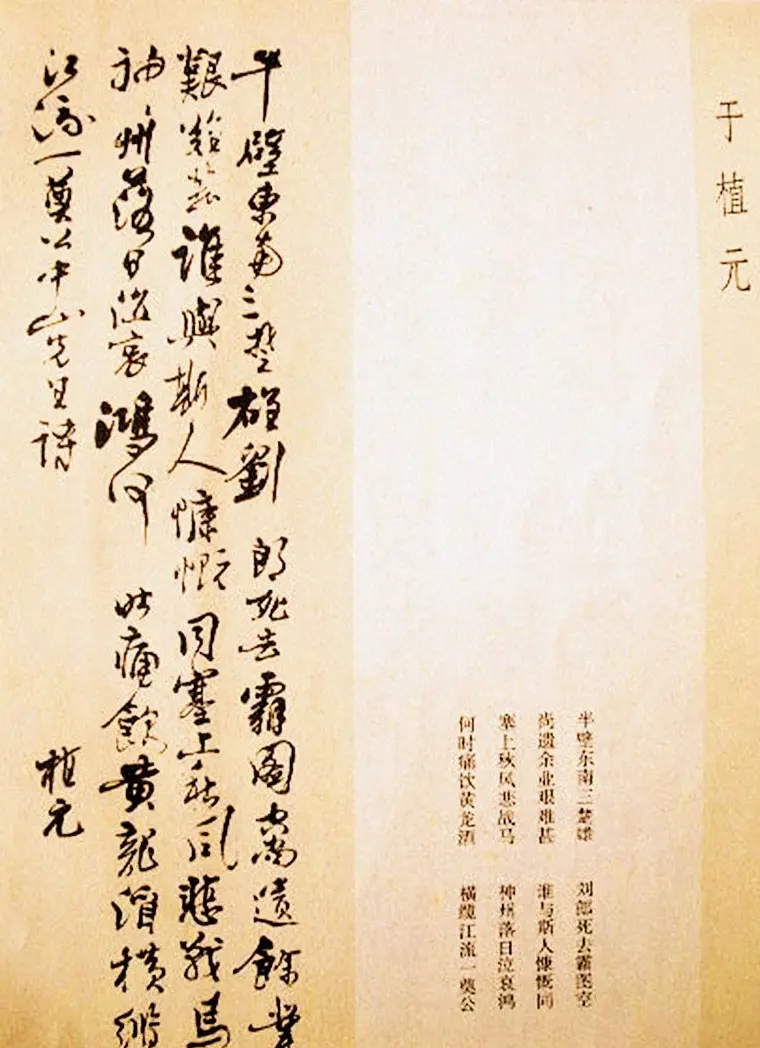 于植元
半壁东南三楚雄 刘郎死去霸图空
尚遗余业艰难甚 谁与斯人慷慨同
塞上秋风悲战马 神州落日泣哀鸿
何时痛饮黄龙酒 横缆江流一奠公
半壁東南三楚雄劉郎死去霸圖空尚遺餘業
艱難甚誰與斯人慷慨同塞上秋風悲戰馬
神州落日泣哀鴻何時痛飲黃龍酒橫纜
江流一奠公中山先生詩
植元